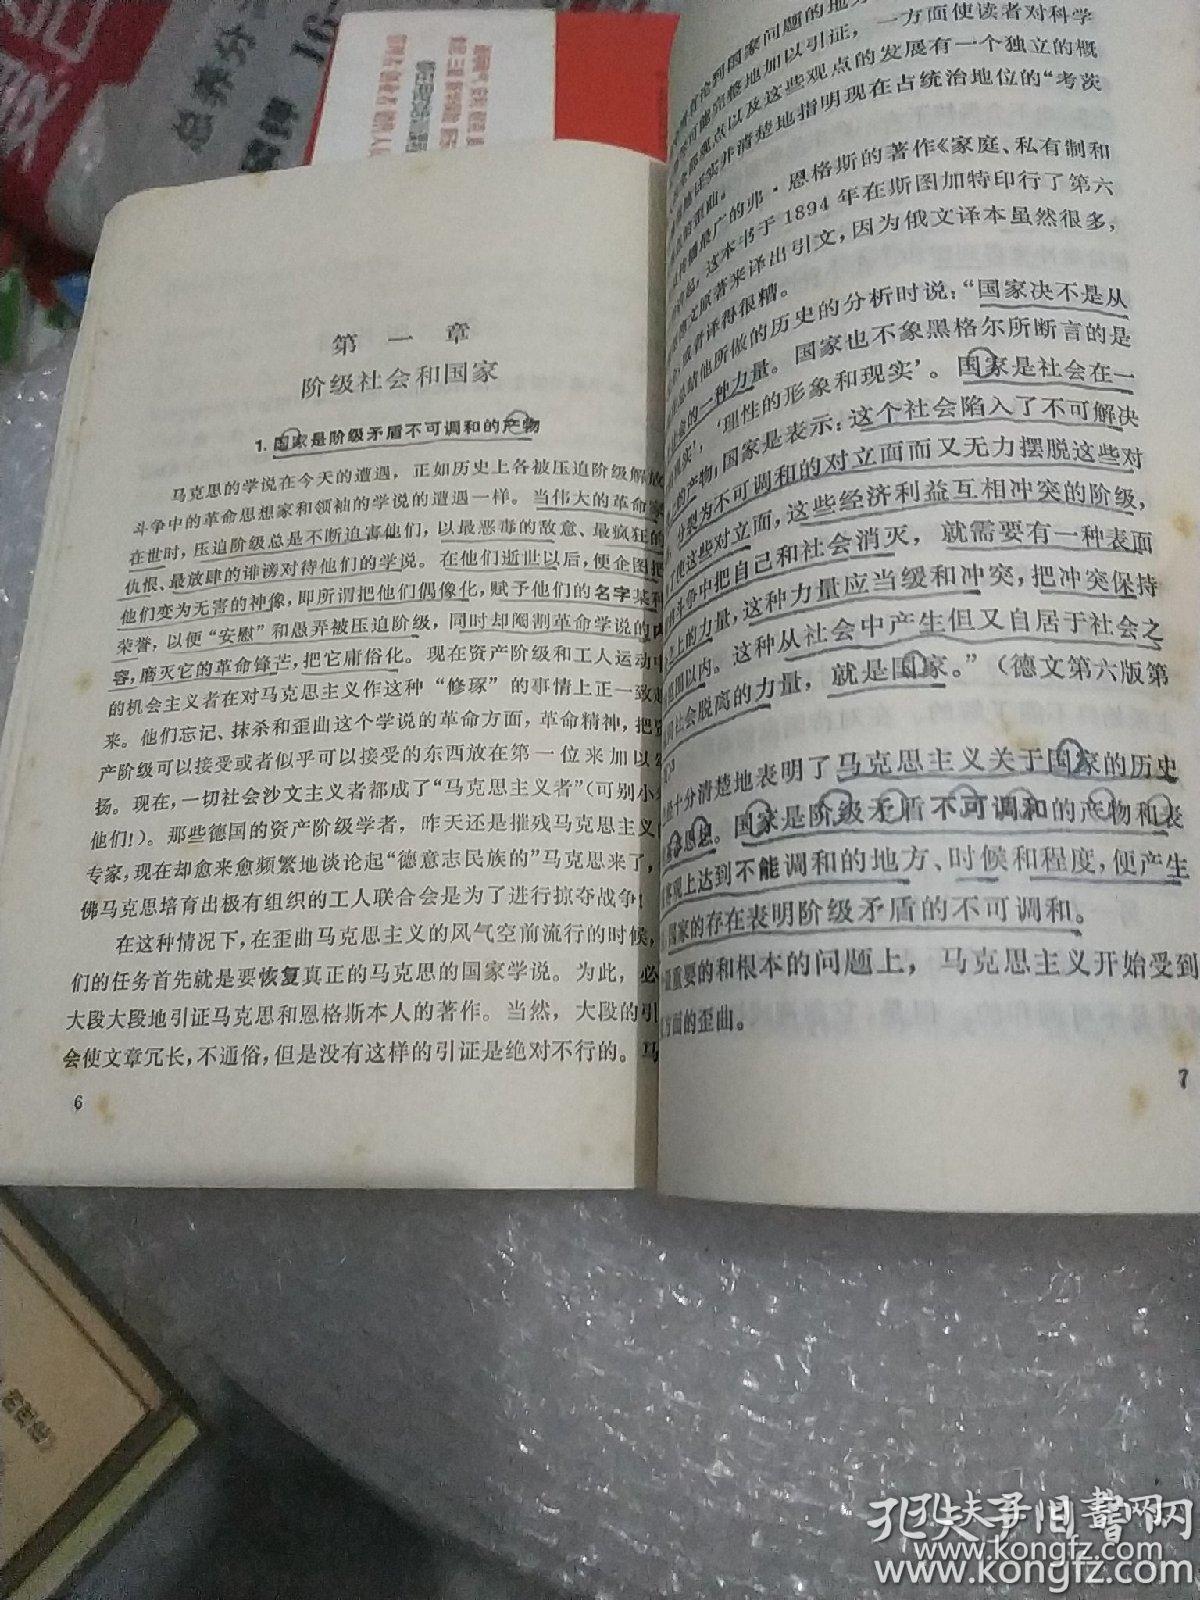 总养分
第一章
阶级社会和国家
1. 国家是阶级矛盾不可调和的产物
马克思的学说在今天的遭遇，正如历史上各被压迫阶级解放
斗争中的革命思想家和领袖的学说的遭遇一样。当伟大的革命家
在世时，压迫阶级总是不断迫害他们，以最恶毒的敌意、最疯狂的
仇恨、最放肆的诽谤对待他们的学说。在他们逝世以后，便企图把
他们变为无害的神像，即所谓把他们偶像化，赋予他们的名字某种
荣誉，以便“安慰”和愚弄被压迫阶级，同时却阉割革命学说的内
容，磨灭它的革命锋芒，把它庸俗化。现在资产阶级和工人运动中
的机会主义者在对马克思主义作这种“修琢”的事情上正一致起
来。他们忘记、抹杀和歪曲这个学说的革命方面，革命精神，把资
产阶级可以接受或者似乎可以接受的东西放在第一位来加以
扬。现在，一切社会沙文主义者都成了“马克思主义者”（可别小
他们！）。那些德国的资产阶级学者，昨天还是摧残马克思主义
专家，现在却愈来愈频繁地谈论起“德意志民族的”马克思来了，
佛马克思培育出极有组织的工人联合会是为了进行掠夺战争！
在这种情况下，在歪曲马克思主义的风气空前流行的时候，
们的任务首先就是要恢复真正的马克思的国家学说。为此，必
大段大段地引证马克思和恩格斯本人的著作。当然，大段的引
会使文章冗长，不通俗，但是没有这样的引证是绝对不行的。马
6
论到国家问题的地方
可能完整地加以引证，一方面使读者对科学
全部观点以及这些观点的发展有一个独立的概
证实并清楚地指明现在占统治地位的“考茨
歪曲。
传播最广的弗·恩格斯的著作《家庭、私有制和
起，这本书于1894年在斯图加特印行了第六
德文原著来译出引文，因为俄文译本虽然很多，
或者译得很糟。
总结他所做的历史的分析时说：“国家决不是从
会的一种力量。国家也不象黑格尔所断言的是
现实’，‘理性的形象和现实’。国家是社会在一
的产物；国家是表示：这个社会陷入了不可解决
分裂为不可调和的对立面而又无力摆脱这些对
了使这些对立面，这些经济利益互相冲突的阶级，
斗争中把自己和社会消灭，就需要有一种表面
之上的力量，这种力量应当缓和冲突，把冲突保持
范围以内。这种从社会中产生但又自居于社会之
同社会脱离的力量，就是国家。”（德文第六版第
十分清楚地表明了马克思主义关于国家的历史
基本思想。国家是阶级矛盾不可调和的产物和表
客观上达到不能调和的地方、时候和程度，便产生
国家的存在表明阶级矛盾的不可调和。
最重要的和根本的问题上，马克思主义开始受到
方面的歪曲。
7
孔夫子旧书网
www.kongfz.com